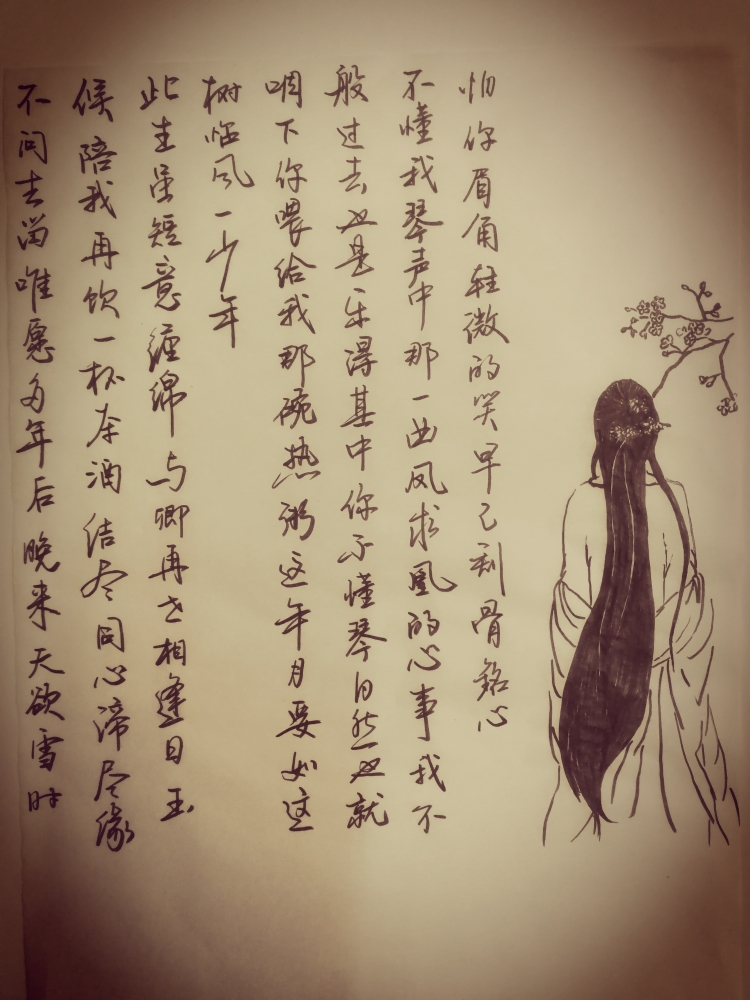 怕你眉角轻微的笑早已刻骨铭心
不懂我琴声中那一曲凤求凰的心事我不
般过去也是乐得其中你不懂琴自然也就
咽下你喂给我那碗热粥这年月要如这
树临风一少年
此生虽短意缠绵与卿再世相逢日玉
候陪我再饮一杯茶酒结尽同心谛尽缘
不问去留唯愿多年后晚来天欲雪时